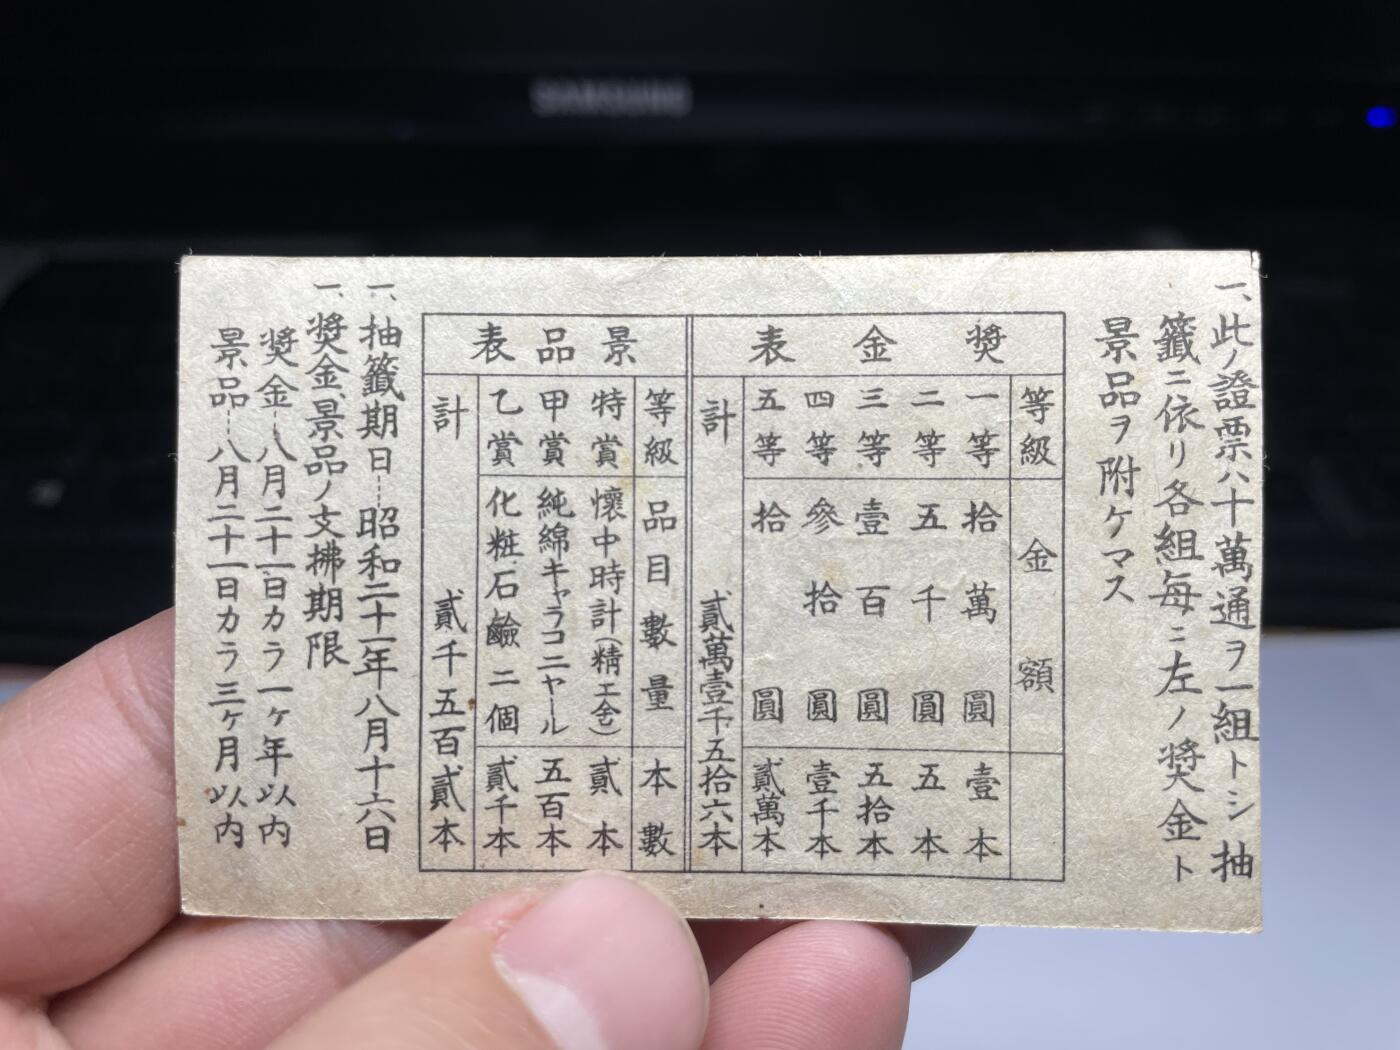 SAMSUNG
一、此ノ證票ハ十萬通ヲ一組トシ抽
籤ニ依リ各組毎ニ左ノ奬金ト
景品ヲ附ケマス
奬金表
等級 金額
一等 拾萬圓 壹本
二等 五千圓 五本
三等 壹百圓 五拾本
四等 參拾圓 壹千本
五等 拾圓 貳萬本
計 貳萬壹千五拾六本
景品表
等級 品目數量 本數
特賞 懷中時計(精工舎) 貳本
甲賞 純綿キャラコ二ヤール 五百本
乙賞 化粧石鹼二個 貳千本
計 貳千五百貳本
一、抽籤期日┄昭和二十一年八月十六日
一、奬金、景品ノ支拂期限
奬金┄八月二十一日カラ一ヶ年以内
景品┄八月二十一日カラ三ヶ月以内